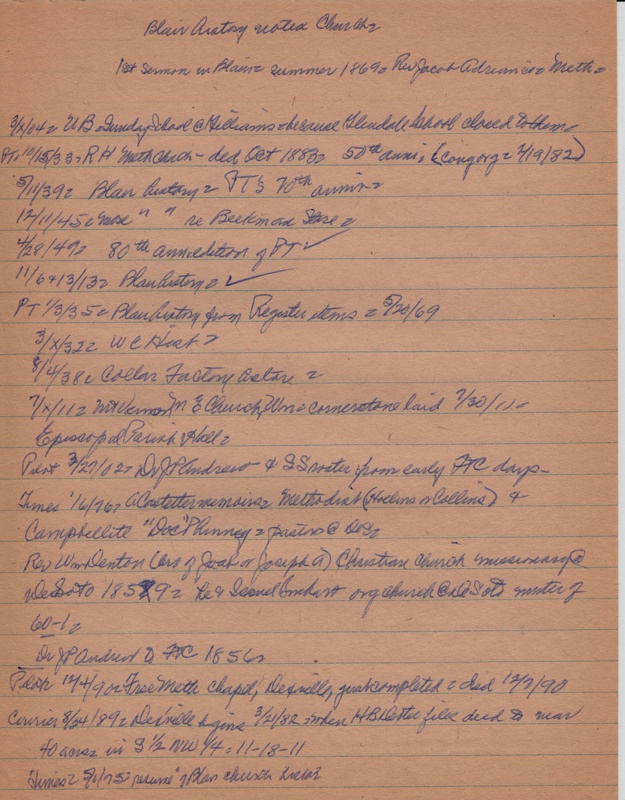 Blair history notes Church=
1st sermon in Blair= summer 1869= Rev Jacob Adriance= Meth=
3/x/04= UB=Sunday School @ Williams=because Glendale School closed to them=
PT 10/15/33= R H Meth Church - ded Oct 1883= 50th anni. (cong org= 4/9/82)
5/11/39= Blair history= PT's 70th anniv=
12/11/45= more " " re Beekman Store=
4/28/49= 80th ann edition of PT ✓
11/6&13/13= Blair history= ✓
PT 1/3/35= Blair history from Register items= 5/20/69
3/x/32= W C Hist=
8/4/38= Collar Factory & store=
7/x/11= Mt Vernon M E Church, Wn= cornerstone laid 7/30/11=
Episcopal Parish Hall=
Pilot 3/27/02= Dr JP Andrew & SS roster from early FtC days-
Times 1/6/76= A Castetter memoirs= Methodist ( or Collins) &
Campbellite "Doc" Phinney= pastors @ DeS=
Rev Wm Denton (bro of Joab or Joseph A) Christian Church missionary @
DeSoto 1859= he & org church @ DeSoto winter of
60-1=
Dr JP Andrew to FtC 1856=
Pilot 12/4/90= Free Meth chapel, Dexville, just completed= ded 12/7/90
Courier 8/24/89= Dexville begins 3/21/82= when H B Dexter files deed to near
40 acres in S 1/2 NW 1/4= 11-18-11
Times= 5/1/75= resume of Blair church histor